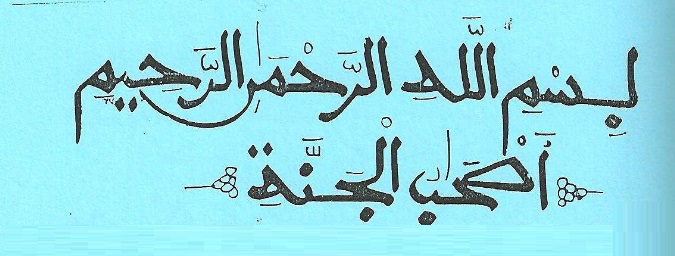 بِسْمِ اللَّهِ الرَّحْمَٰنِ الرَّحِيمِ
أَصْحَٰبُ الْجَنَّةِ